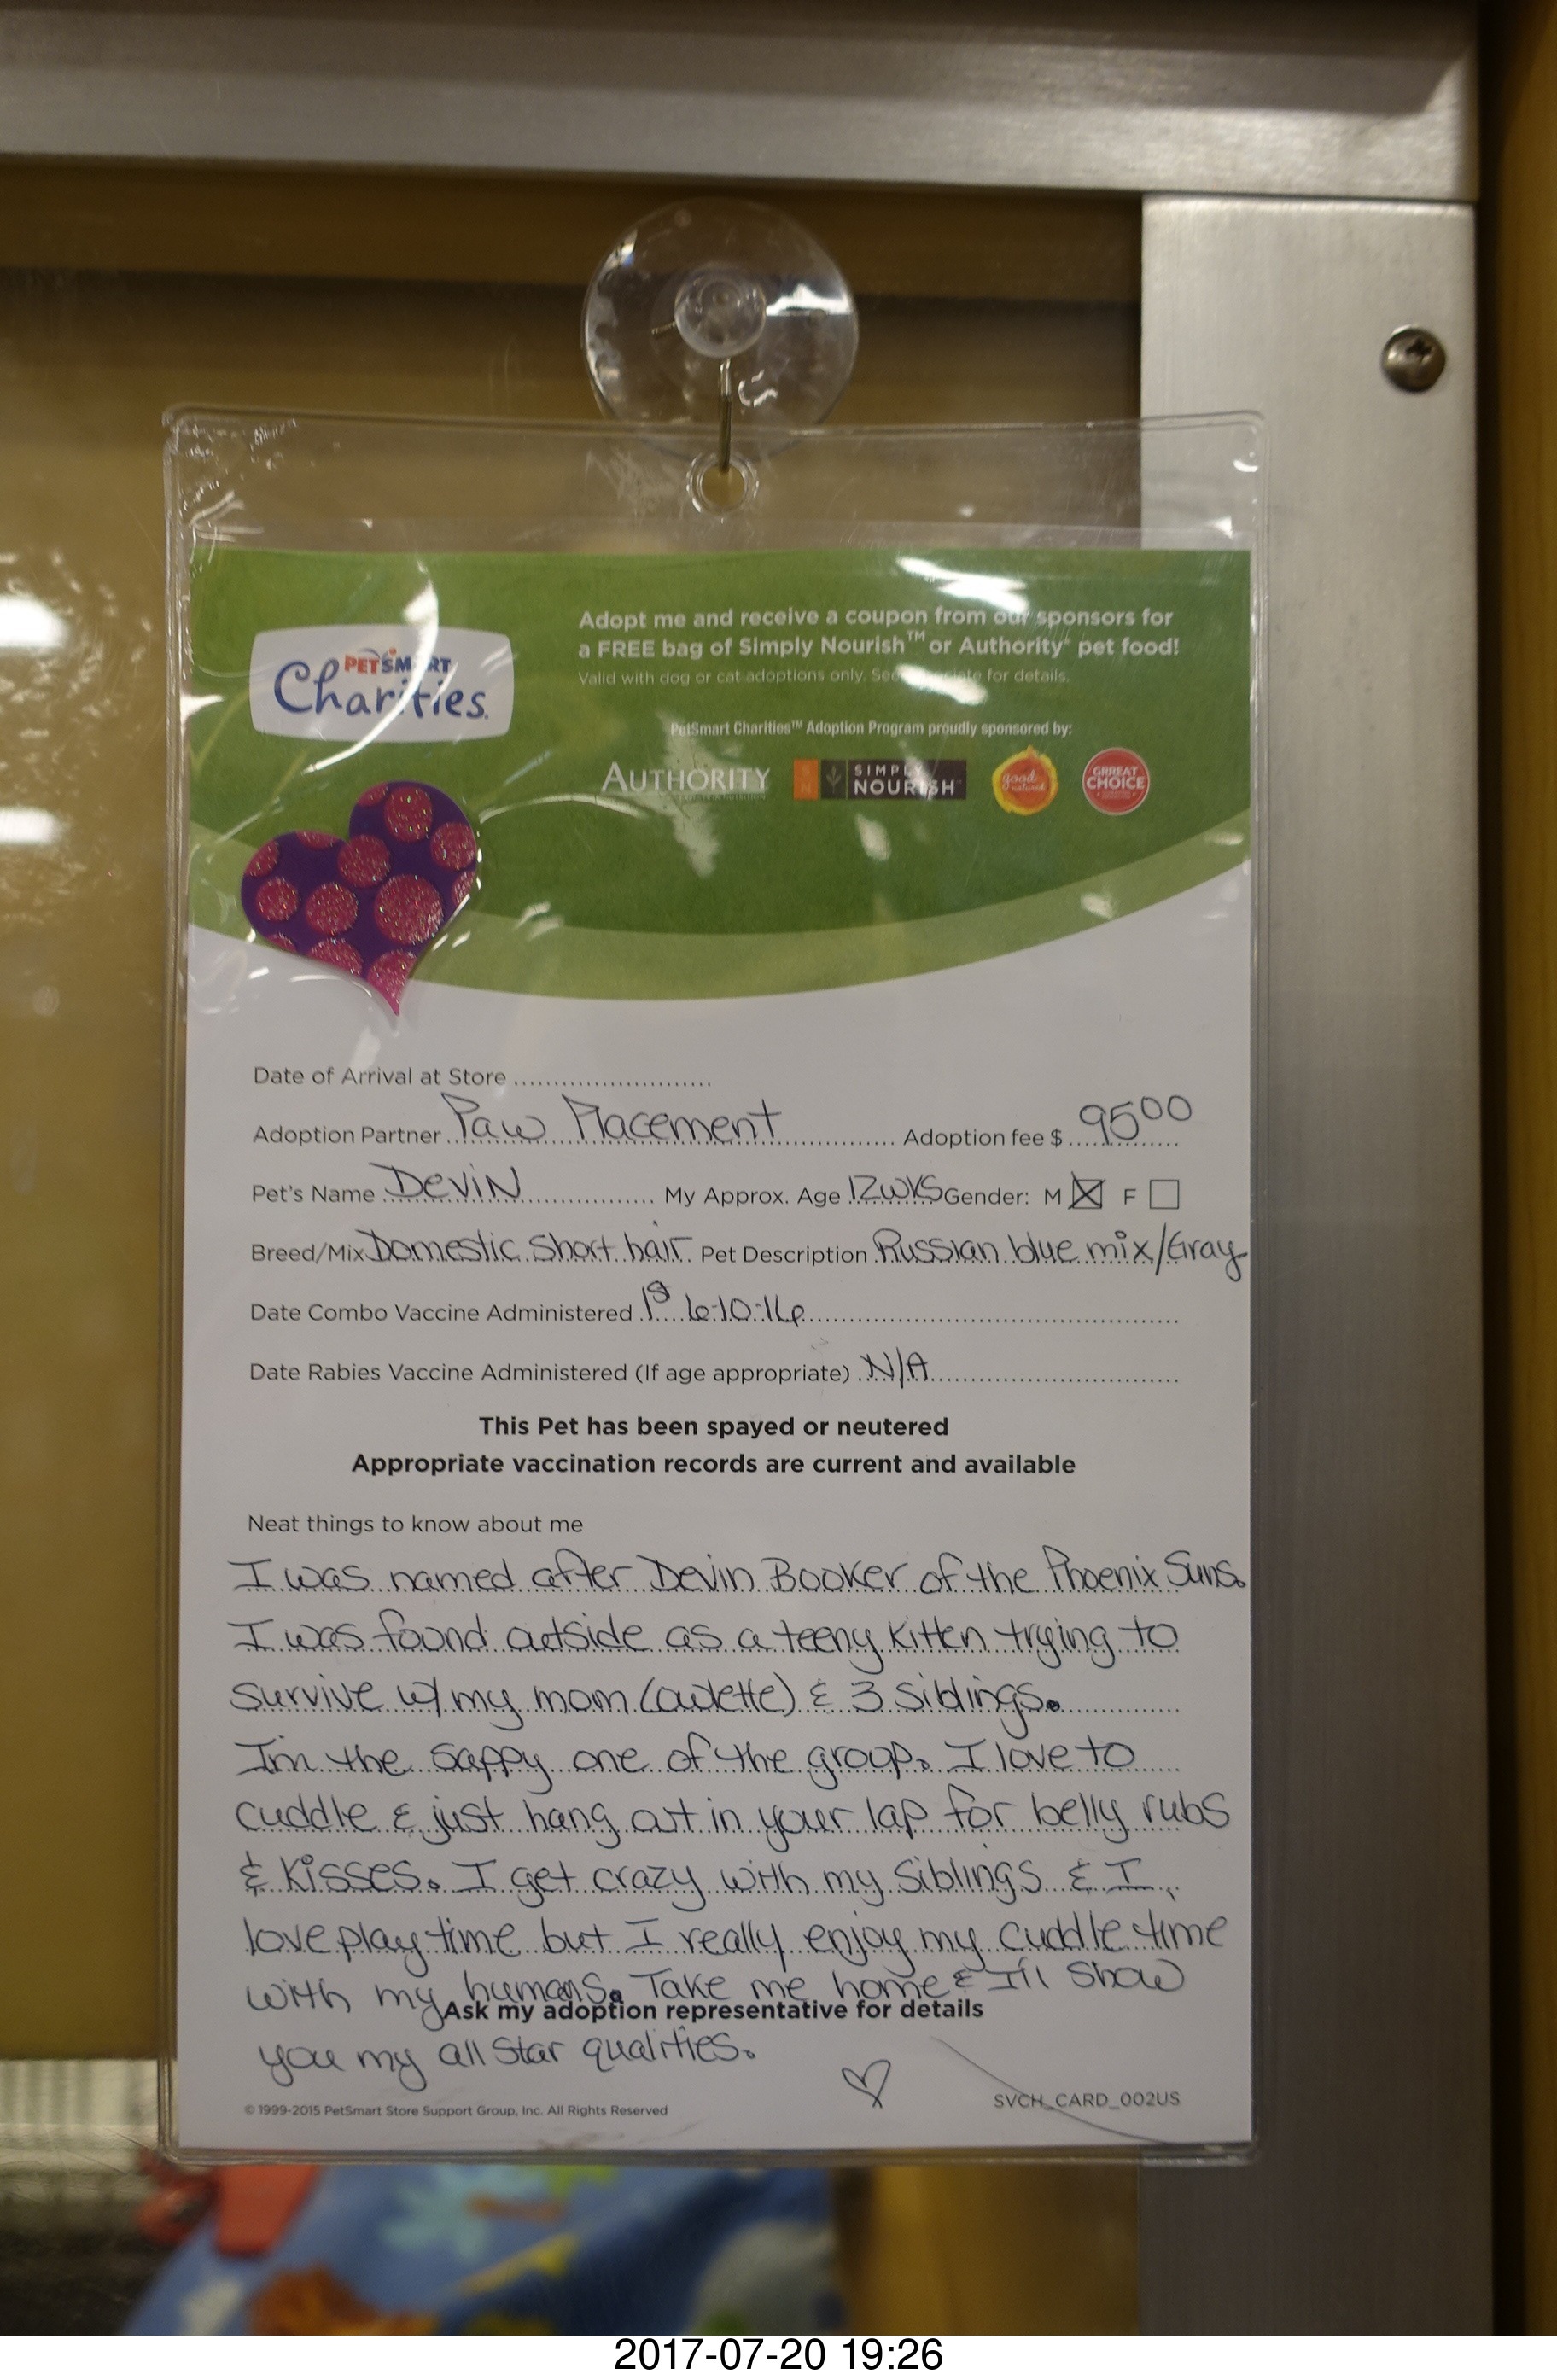 Adopt me and receive a coupon from our sponsors for
a FREE bag of Simply Nourish™ or Authority® pet food!
Valid with dog or cat adoptions only. See associate for details.
PETSMART
Charities.
PetSmart Charities™ Adoption Program proudly sponsored by:
AUTHORITY
SN SIMPLY
NOURISH
good
natured
GRREAT
CHOICE
Date of Arrival at Store
Adoption Partner Paw Placement Adoption fee $ 95 00
Pet's Name DeviN My Approx. Age 12wks Gender: M ☒ F ☐
Breed/Mix Domestic Short hair Pet Description Russian blue mix/Gray
Date Combo Vaccine Administered 1st 6-10-16
Date Rabies Vaccine Administered (If age appropriate) N/A
This Pet has been spayed or neutered
Appropriate vaccination records are current and available
Neat things to know about me
I was named after Devin Booker of the Phoenix Suns.
I was found outside as a teeny kitten trying to
survive w/ my mom (owlette) & 3 siblings.
I'm the sappy one of the group. I love to
cuddle & just hang out in your lap for belly rubs
& kisses. I get crazy with my siblings & I
love play time but I really enjoy my cuddle time
with my humans. Take me home & I'll show
Ask my adoption representative for details
you my all star qualities.
© 1999-2015 PetSmart Store Support Group, Inc. All Rights Reserved
SVCH_CARD_002US
2017-07-20 19:26